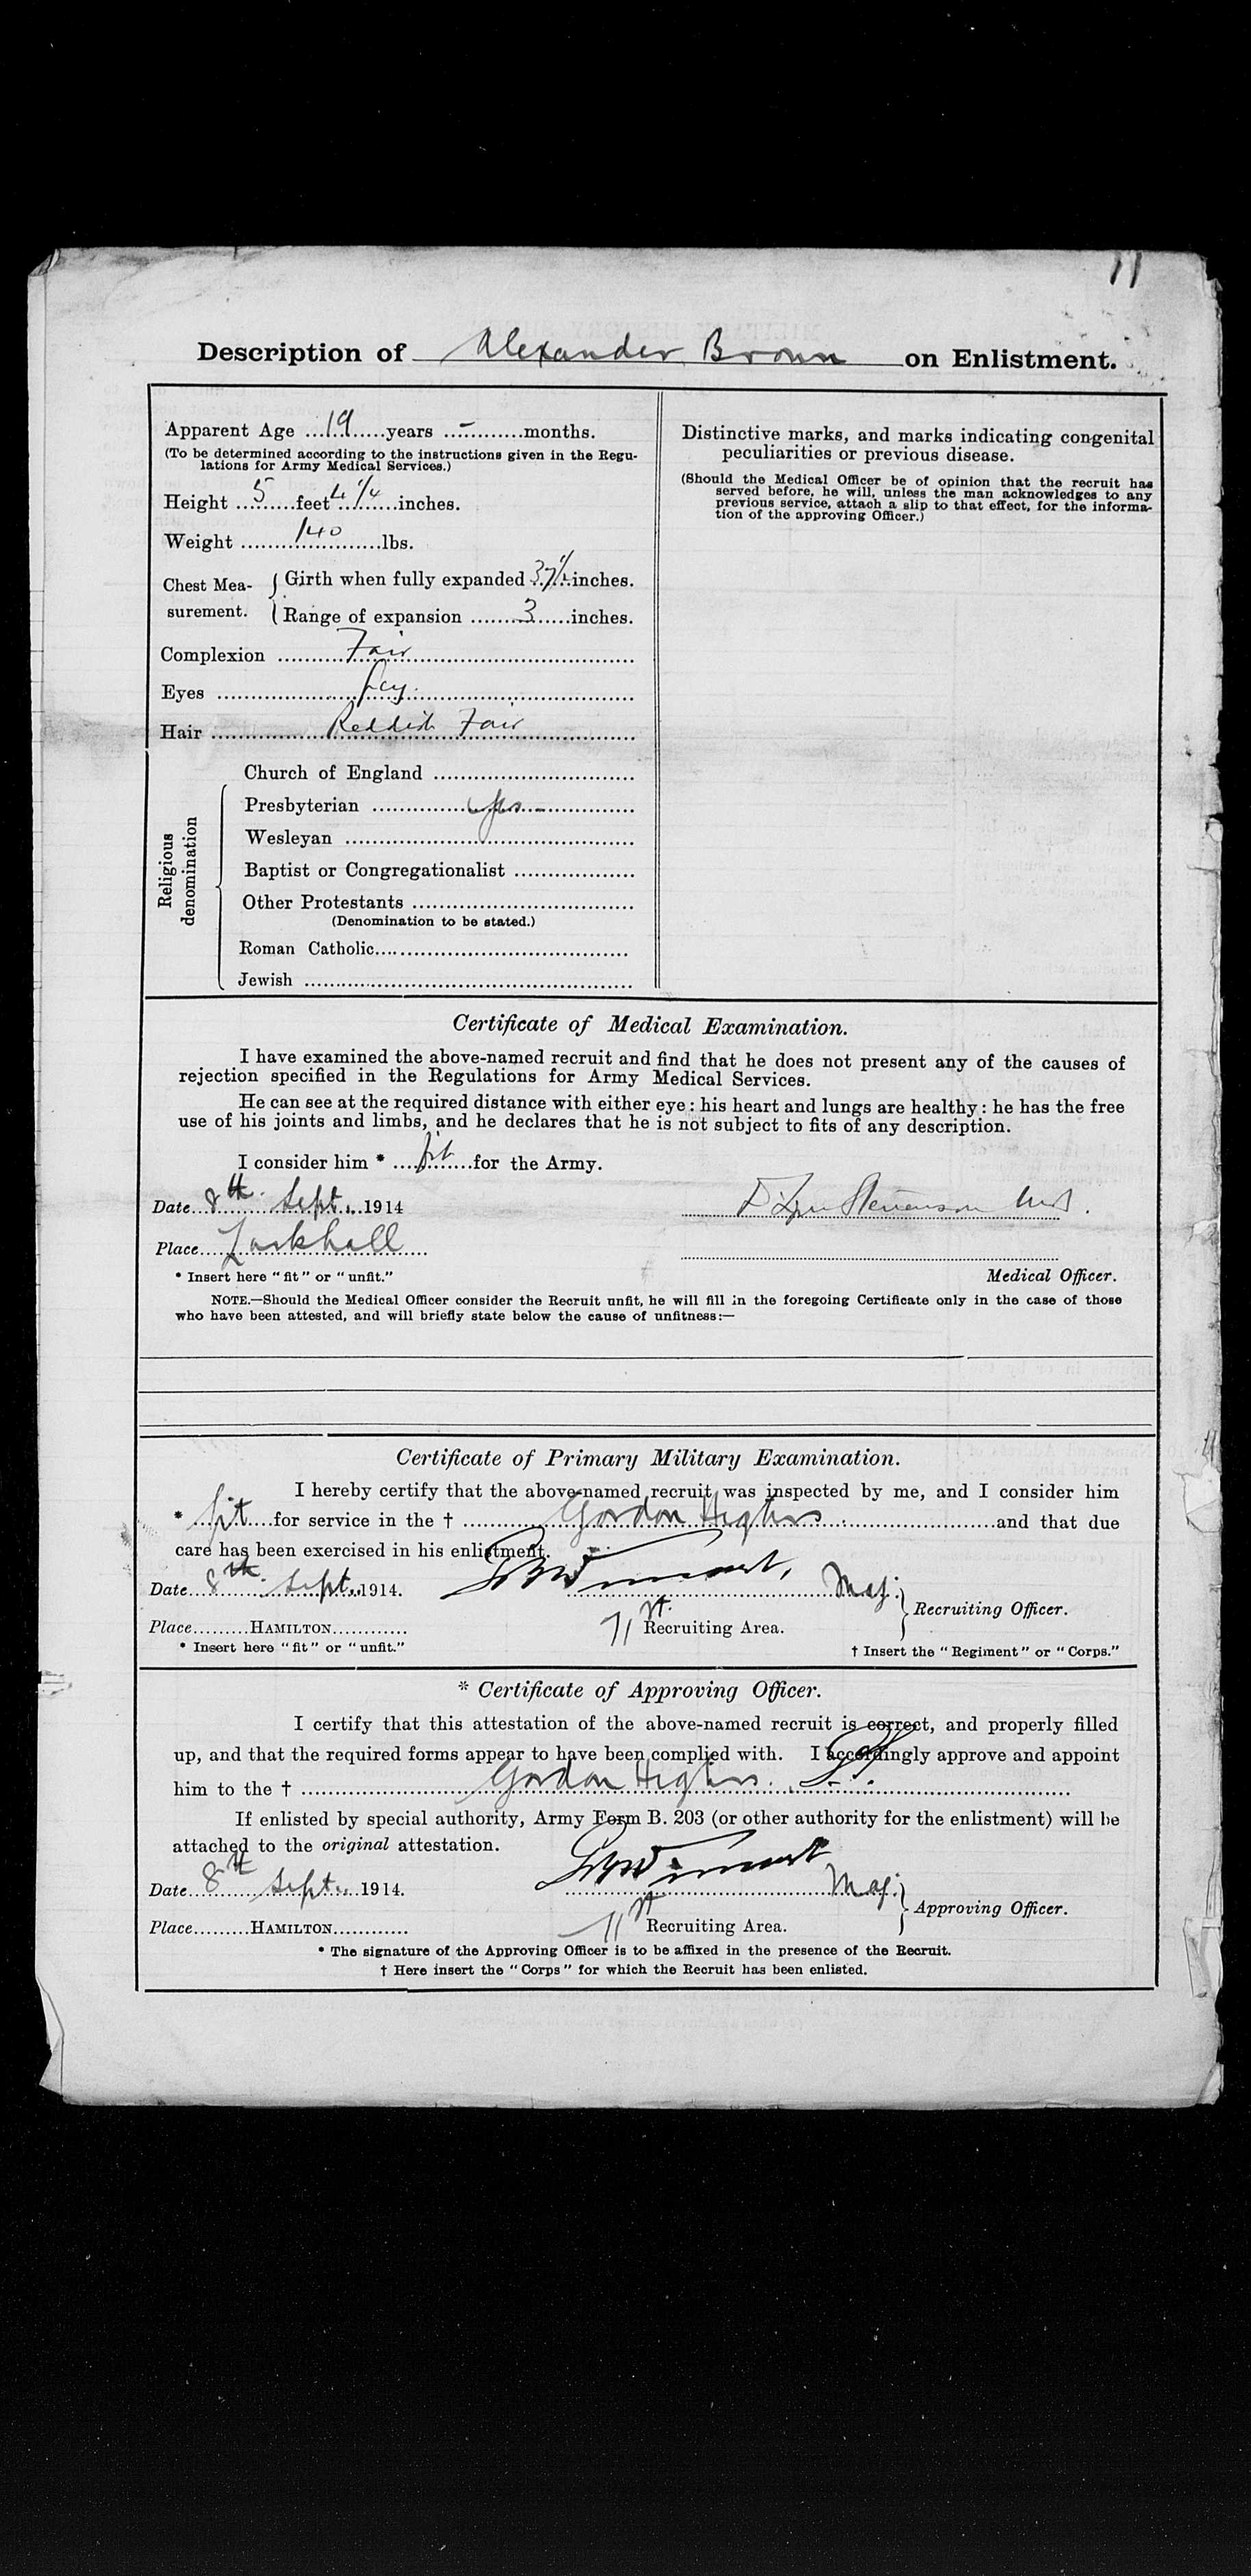 11
Description of Alexander Brown on Enlistment.
Apparent Age 19 years - months.
(To be determined according to the instructions given in the Regu-
lations for Army Medical Services.)
Height 5 feet 4 1/4 inches.
Weight 140 lbs.
Chest Mea-
surement.
Girth when fully expanded 37 1/2 inches.
Range of expansion 3 inches.
Complexion Fair
Eyes
Hair Reddish Fair
Religious
denomination
Church of England
Presbyterian yes
Wesleyan
Baptist or Congregationalist
Other Protestants
(Denomination to be stated.)
Roman Catholic
Jewish
Distinctive marks, and marks indicating congenital
peculiarities or previous disease.
(Should the Medical Officer be of opinion that the recruit has
served before, he will, unless the man acknowledges to any
previous service, attach a slip to that effect, for the informa-
tion of the approving Officer.)
Certificate of Medical Examination.
I have examined the above-named recruit and find that he does not present any of the causes of
rejection specified in the Regulations for Army Medical Services.
He can see at the required distance with either eye: his heart and lungs are healthy: he has the free
use of his joints and limbs, and he declares that he is not subject to fits of any description.
I consider him * fit for the Army.
Date 8th Sept. 1914 Stevenson
Place Larkhall
* Insert here "fit" or "unfit." Medical Officer.
NOTE.—Should the Medical Officer consider the Recruit unfit, he will fill in the foregoing Certificate only in the case of those
who have been attested, and will briefly state below the cause of unfitness:—
Certificate of Primary Military Examination.
I hereby certify that the above-named recruit was inspected by me, and I consider him
* fit for service in the † Gordon Highrs and that due
care has been exercised in his enlistment.
Date 8th Sept. 1914. Maj.
Recruiting Officer.
Place HAMILTON 71st Recruiting Area.
* Insert here "fit" or "unfit." † Insert the "Regiment" or "Corps."
* Certificate of Approving Officer.
I certify that this attestation of the above-named recruit is correct, and properly filled
up, and that the required forms appear to have been complied with. I accordingly approve and appoint
him to the † Gordon Highrs.
If enlisted by special authority, Army Form B. 203 (or other authority for the enlistment) will be
attached to the original attestation.
Date 8th Sept. 1914. Maj.
Approving Officer.
Place HAMILTON 71st Recruiting Area.
* The signature of the Approving Officer is to be affixed in the presence of the Recruit.
† Here insert the "Corps" for which the Recruit has been enlisted.